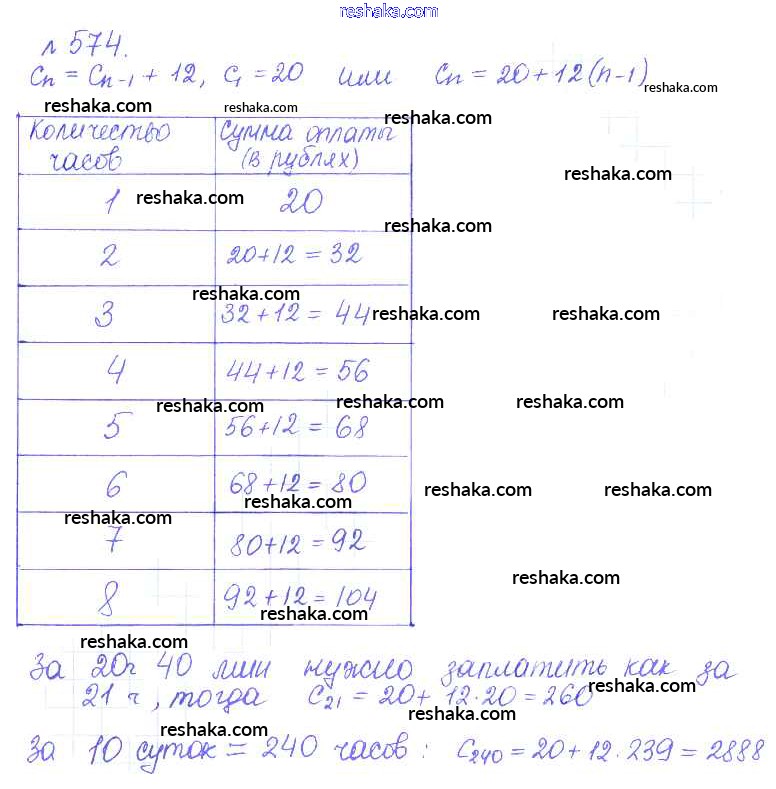 reshaka.com
№ 574.
Cn = Cn-1 + 12, C1 = 20 или Cn = 20+12(n-1)
reshaka.com reshaka.com reshaka.com reshaka.com
Количество часов Сумма оплаты (в рублях)
reshaka.com
1 20
reshaka.com reshaka.com
2 20+12 = 32
reshaka.com
3 32+12 = 44
reshaka.com reshaka.com
4 44+12 = 56
reshaka.com reshaka.com reshaka.com
5 56+12 = 68
6 68+12 = 80
reshaka.com reshaka.com reshaka.com
reshaka.com
7 80+12 = 92
reshaka.com
8 92+12 = 104
reshaka.com
reshaka.com
За 20ч 40 мин нужно заплатить как за
21 ч, тогда C21 = 20+ 12·20 = 260
reshaka.com reshaka.com
reshaka.com
За 10 суток = 240 часов: C240 = 20+12·239 = 2888
reshaka.com reshaka.com